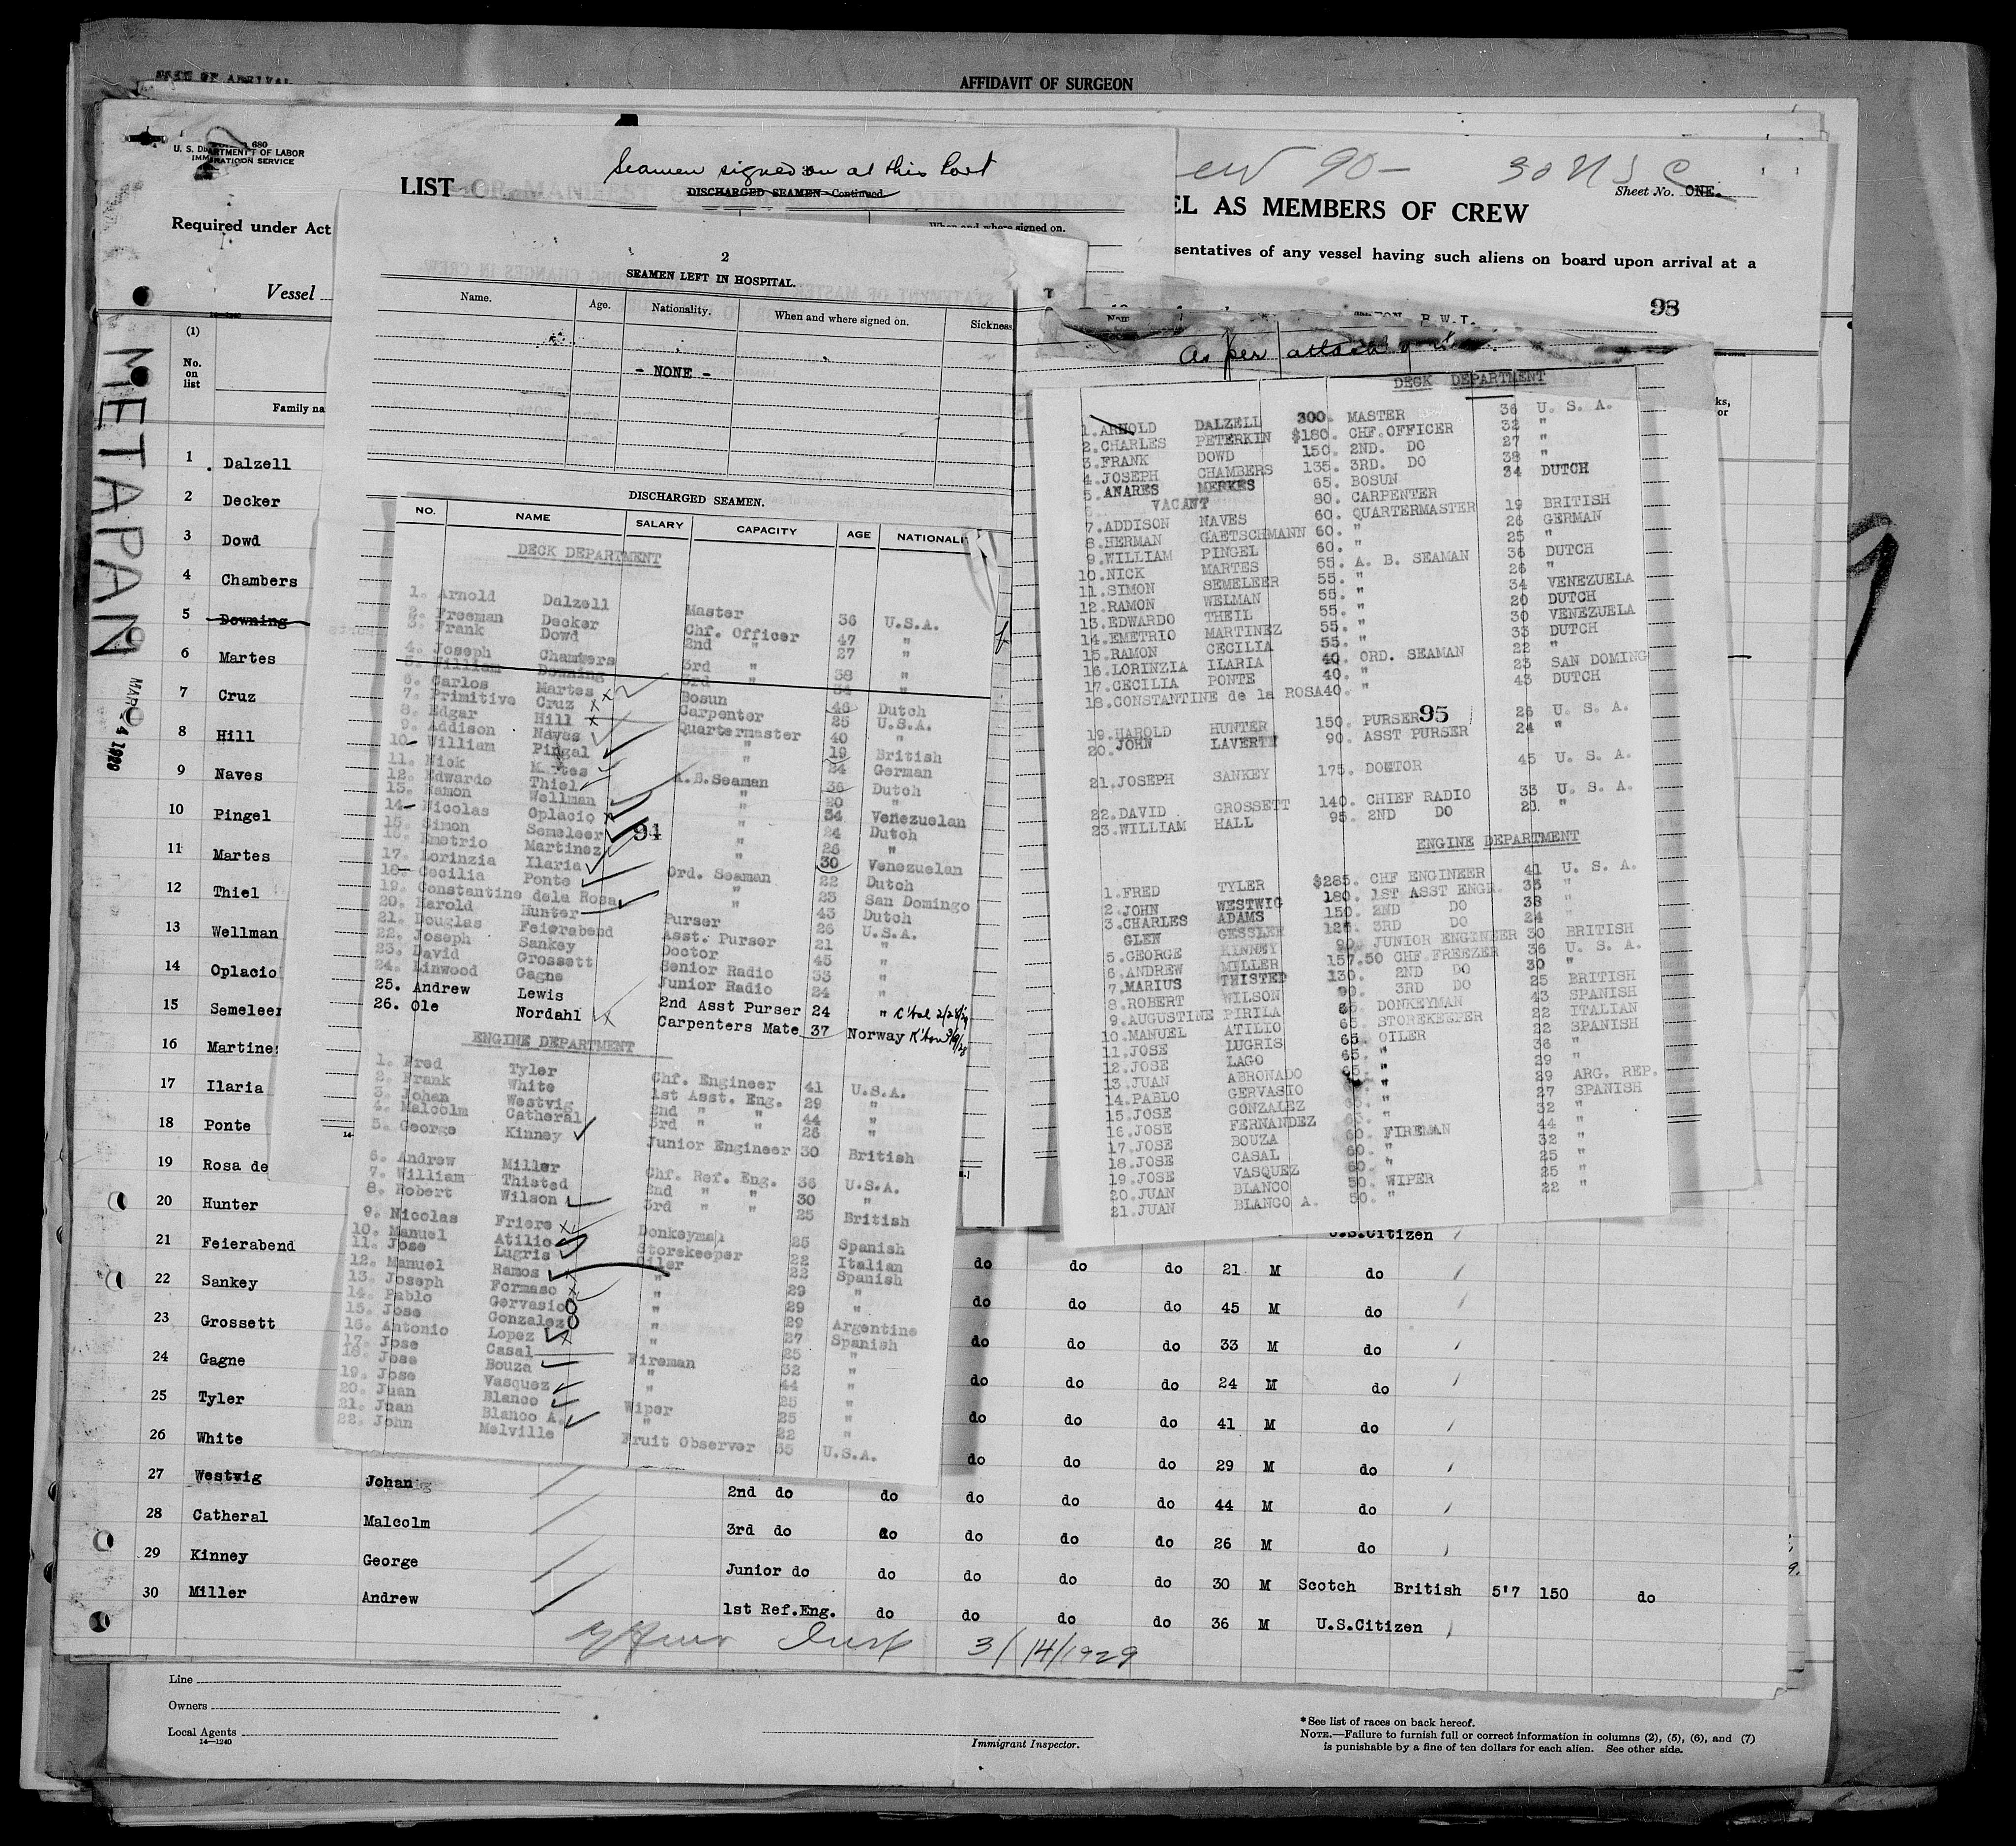 AFFIDAVIT OF SURGEON
680
U. S. DEPARTMENT OF LABOR
IMMIGRATION SERVICE
Seamen signed on at this Port
DISCHARGED SEAMEN—Continued
90 –
Sheet No. ONE.
LIST
EL AS MEMBERS OF CREW
Required under Act
sentatives of any vessel having such aliens on board upon arrival at a
Vessel
METAPAN
98
2
SEAMEN LEFT IN HOSPITAL.
Name. Age. Nationality. When and where signed on. Sickness
- NONE -
As per attached
(1)
No. on list
Family na
1 Dalzell
2 Decker
3 Dowd
4 Chambers
5 Downing
6 Martes
7 Cruz
8 Hill
9 Naves
10 Pingel
11 Martes
12 Thiel
13 Wellman
14 Oplacio
15 Semeleer
16 Martines
17 Ilaria
18 Ponte
19 Rosa de
20 Hunter
21 Feierabend
22 Sankey
23 Grossett
24 Gagne
25 Tyler
26 White
27 Westwig Johan
28 Catheral Malcolm
29 Kinney George
30 Miller Andrew
DISCHARGED SEAMEN.
NO. NAME SALARY CAPACITY AGE NATIONALI
DECK DEPARTMENT
1. Arnold Dalzell Master 36 U.S.A.
2. Freeman Decker Chf. Officer 47 "
3. Frank Dowd 2nd " 27 "
4. Joseph Chambers 3rd " 38 "
5. William Downing 3rd " 34 "
6. Carlos Martes Bosun 46 Dutch
7. Primitive Cruz Carpenter 25 U.S.A.
8. Edgar Hill Quartermaster 40 "
9. Addison Naves " 19 British
10. William Pingal " 24 German
11. Nick Martes A.B.Seaman 36 Dutch
12. Edwardo Thiel " 20 "
13. Ramon Wellman " 34 Venezuelan
14. Nicolas Oplacio " 24 Dutch
15. Simon Semeleer " 26 "
16. Emetrio Martinez " 30 Venezuelan
17. Lorinzia Ilaria Ord. Seaman 22 Dutch
18. Cecilia Ponte " 23 San Domingo
19. Constantine dela Rosa " 43 Dutch
20. Harold Hunter Purser 26 U.S.A.
21. Douglas Feierabend Asst. Purser 21 "
22. Joseph Sankey Doctor 45 "
23. David Grossett Senior Radio 33 "
24. Linwood Gagne Junior Radio 24 "
25. Andrew Lewis 2nd Asst Purser 24 "
26. Ole Nordahl Carpenters Mate 37 Norway
94
ENGINE DEPARTMENT
1. Fred Tyler Chf. Engineer 41 U.S.A.
2. Frank White 1st Asst. Eng. 29 "
3. Johan Westvig 2nd " " 44 "
4. Malcolm Catheral 3rd " " 26 "
5. George Kinney Junior Engineer 30 British
6. Andrew Miller Chf. Ref. Eng. 36 U.S.A.
7. William Thisted 2nd " " 30 "
8. Robert Wilson 3rd " " 25 British
9. Nicolas Friere Donkeyman 25 Spanish
10. Manuel Atilio Storekeeper 22 Italian
11. Jose Lugris Oiler 22 Spanish
12. Manuel Ramos " 29 "
13. Joseph Formaso " 29 "
14. Pablo Gervasio " 29 Argentine
15. Jose Gonzalez " 27 Spanish
16. Antonio Lopez " 25 "
17. Jose Casal Fireman 32 "
18. Jose Bouza " 44 "
19. Jose Vasquez " 25 "
20. Juan Blanco Wiper 25 "
21. Juan Blanco A. " 22 "
22. John Melville Fruit Observer 35 U.S.A.
DECK DEPARTMENT
1. ARNOLD DALZELL 300. MASTER 36 U. S. A.
2. CHARLES PETERKIN $180. CHF. OFFICER 32 "
3. FRANK DOWD 150. 2ND. DO 27 "
4. JOSEPH CHAMBERS 135. 3RD. DO 38 "
5. ANARES MERKES 65. BOSUN 34 DUTCH
6. VACANT 80. CARPENTER
7. ADDISON NAVES 60. QUARTERMASTER 19 BRITISH
8. HERMAN GAETSCHMANN 60. " 26 GERMAN
9. WILLIAM PINGEL 60. " 25 "
10. NICK MARTES 55. A. B. SEAMAN 36 DUTCH
11. SIMON SEMELEER 55. " 26 "
12. RAMON WELMAN 55. " 34 VENEZUELA
13. EDWARDO THEIL 55. " 20 DUTCH
14. EMETRIO MARTINEZ 55. " 30 VENEZUELA
15. RAMON CECILIA 55. " 33 DUTCH
16. LORINZIA ILARIA 40. ORD. SEAMAN 22 "
17. CECILIA PONTE 40. " 23 SAN DOMING
18. CONSTANTINE de la ROSA 40. " 43 DUTCH
95
19. HAROLD HUNTER 150. PURSER 26 U. S. A.
20. JOHN LAVERTE 90. ASST PURSER 24 "
21. JOSEPH SANKEY 175. DOCTOR 45 U. S. A.
22. DAVID GROSSETT 140. CHIEF RADIO 33 U. S. A.
23. WILLIAM HALL 95. 2ND DO 21 "
ENGINE DEPARTMENT
1. FRED TYLER $285. CHF ENGINEER 41 U. S. A.
2. JOHN WESTWIG 180. 1ST ASST ENGR. 35 "
3. CHARLES ADAMS 150. 2ND DO 38 "
GLEN GESSLER 126. 3RD DO 24 "
5. GEORGE KINNEY 90. JUNIOR ENGINEER 30 BRITISH
6. ANDREW MILLER 157.50 CHF. FREEZER 36 U. S. A.
7. MARIUS THISTED 130. 2ND DO 30 "
8. ROBERT WILSON 90. 3RD DO 25 BRITISH
9. AUGUSTINE PIRILA 65. DONKEYMAN 43 SPANISH
10. MANUEL ATILIO 65. STOREKEEPER 22 ITALIAN
11. JOSE LUGRIS 65. OILER 22 SPANISH
12. JOSE LAGO 65. " 36 "
13. JUAN ABRONADO 65. " 29 "
14. PABLO GERVASIO " 29 ARG. REP.
15. JOSE GONZALEZ " 27 SPANISH
16. JOSE FERNANDEZ " 32 "
17. JOSE BOUZA 60. FIREMAN 44 "
18. JOSE CASAL 60. " 32 "
19. JOSE VASQUEZ 60. " 25 "
20. JUAN BLANCO 50. WIPER 25 "
21. JUAN BLANCO A. 50. " 22 "
U.S.Citizen
do do do 21 M do
do do do 45 M do
do do do 33 M do
do do do 24 M do
do do do 41 M do
do do do 29 M do
2nd do do do do do 44 M do
3rd do do do do do 26 M do
Junior do do do do do 30 M Scotch British 5'7 150 do
1st Ref.Eng. do do do do 36 M U.S.Citizen
3/14/1929
Line
Owners
Local Agents
14—1240
Immigrant Inspector.
*See list of races on back hereof.
NOTE.—Failure to furnish full or correct information in columns (2), (5), (6), and (7)
is punishable by a fine of ten dollars for each alien. See other side.